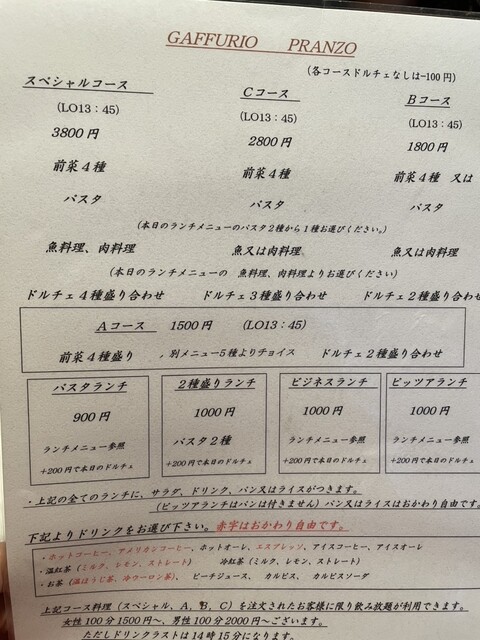 GAFFURIO PRANZO
(各コースドルチェなしは-100円)
スペシャルコース Cコース Bコース
(LO13:45) (LO13:45) (LO13:45)
3800円 2800円 1800円
前菜4種 前菜4種 前菜4種 又は
パスタ パスタ パスタ
(本日のランチメニューのパスタ2種から1種お選びください。)
魚料理、肉料理 魚又は肉料理 魚又は肉料理
(本日のランチメニューの 魚料理、肉料理よりお選びください)
ドルチェ4種盛り合わせ ドルチェ3種盛り合わせ ドルチェ2種盛り合わせ
Aコース 1500円 (LO13:45)
前菜4種盛り ,別メニュー5種よりチョイス ドルチェ2種盛り合わせ
パスタランチ 2種盛りランチ ビジネスランチ ピッツアランチ
900円 1000円 1000円 1000円
ランチメニュー参照 パスタ2種 ランチメニュー参照 ランチメニュー参照
+200円で本日のドルチェ +200円で本日のドルチェ +200円で本日のドルチェ +200円で本日のドルチェ
・上記の全てのランチに、サラダ、ドリンク、パン又はライスがつきます。
(ピッツアランチはパンは付きません)パン又はライスはおかわり自由です。
下記よりドリンクをお選び下さい。赤字はおかわり自由です。
・ホットコーヒー、アメリカンコーヒー、ホットオーレ、エスプレッソ、アイスコーヒー、アイスオーレ
・温紅茶(ミルク、レモン、ストレート) 冷紅茶(ミルク、レモン、ストレート)
・お茶(温ほうじ茶、冷ウーロン茶)、 ピーチジュース、 カルピス、 カルピスソーダ
上記コース料理(スペシャル、A、B、C)を注文されたお客様に限り飲み放題が利用できます。
女性100分1500円〜、男性100分2000円〜ございます。
ただしドリンクラストは14時15分になります。